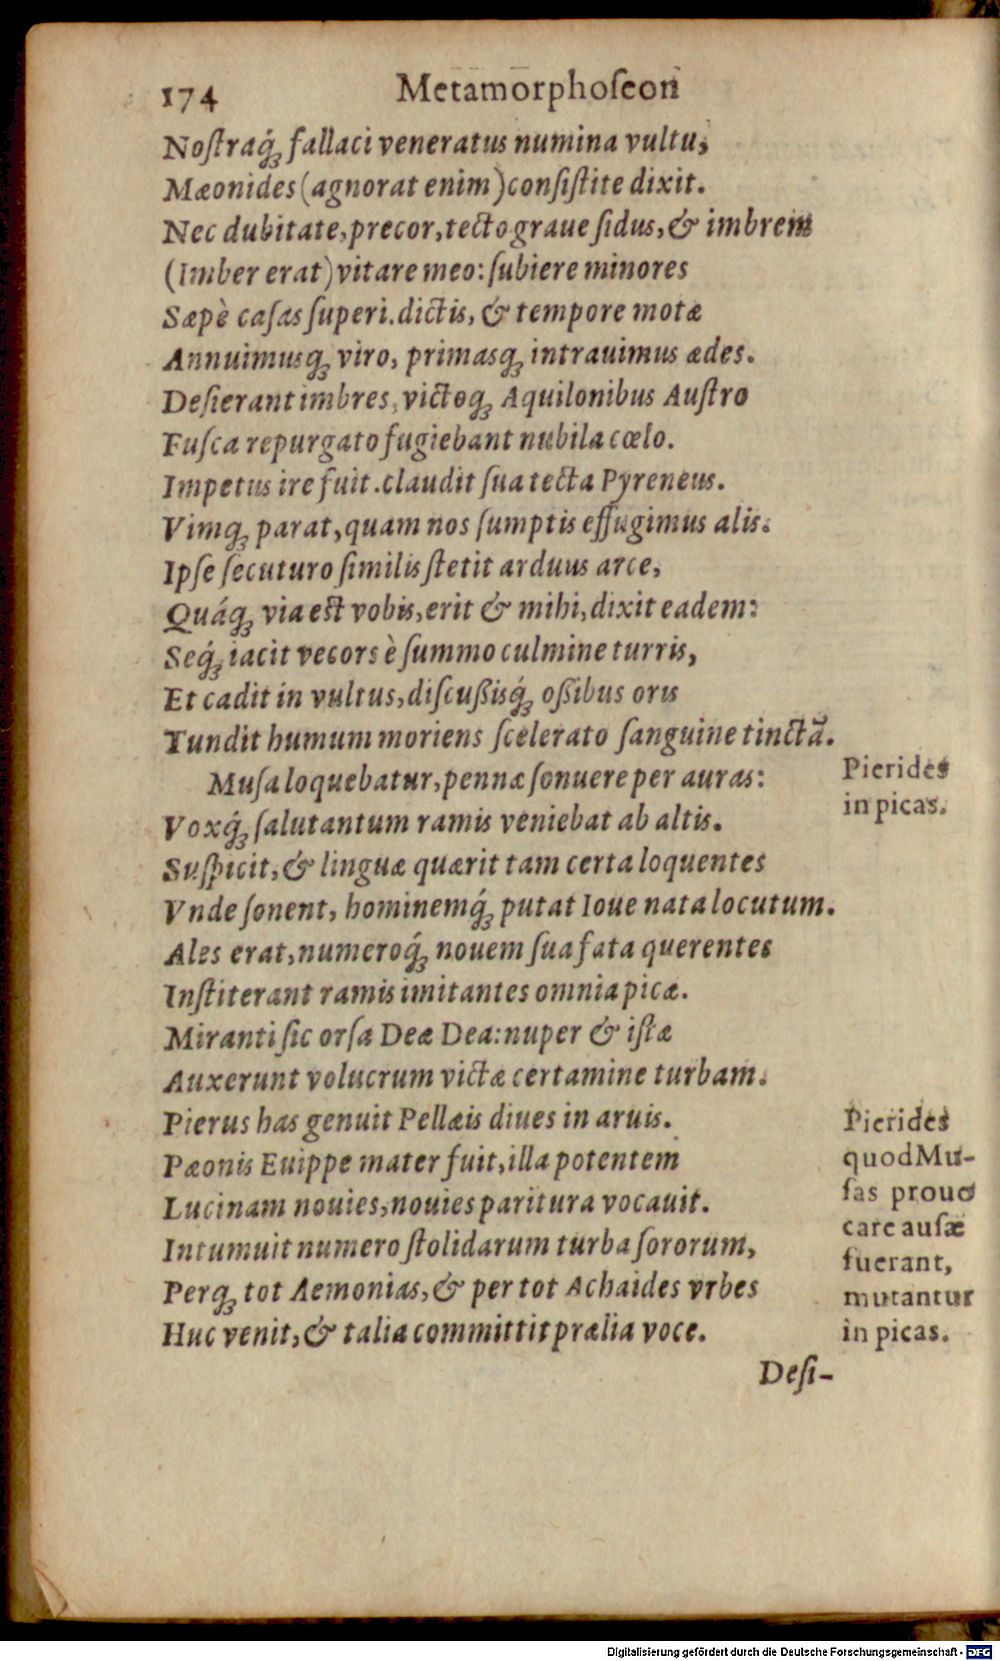 174 Metamorphoſeon
Noſtraq́ꝫ fallaci veneratus numina vultu,
Mæonides (agnorat enim) conſiſtite dixit.
Nec dubitate, precor, tecto graue ſidus, & imbrem
(Imber erat) vitare meo: ſubiere minores
Sæpè caſas ſuperi. dictis, & tempore motæ
Annuimusqꝫ viro, primasqꝫ intrauimus ædes.
Deſierant imbres, victoqꝫ Aquilonibus Auſtro
Fuſca repurgato fugiebant nubila cœlo.
Impetus ire fuit. claudit ſua tecta Pyreneus.
Vimqꝫ parat, quam nos ſumptis effugimus alis.
Ipſe ſecuturo ſimilis ſtetit arduus arce,
Quáqꝫ via est vobis, erit & mihi, dixit eadem:
Seq́ꝫ iacit vecors è ſummo culmine turris,
Et cadit in vultus, diſcußisq́ꝫ oßibus oris
Tundit humum moriens ſcelerato ſanguine tinctã.
Muſa loquebatur, pennæ ſonuere per auras:
Pierides
in picas.
Voxq́ꝫ ſalutantum ramis veniebat ab altis.
Suſpicit, & linguæ quærit tam certa loquentes
Vnde ſonent, hominemq́ꝫ putat Ioue nata locutum.
Ales erat, numeroq́ꝫ nouem ſua fata querentes
Inſtiterant ramis imitantes omnia picæ.
Miranti ſic orſa Deæ Dea: nuper & iſtæ
Auxerunt volucrum victæ certamine turbam.
Pierus has genuit Pellæis diues in aruis.
Pæonis Euippe mater fuit, illa potentem
Lucinam nouies, nouies paritura vocauit.
Intumuit numero ſtolidarum turba ſororum,
Perqꝫ tot Aemonias, & per tot Achaides vrbes
Huc venit, & talia committit prælia voce.
Pierides
quod Mu-
ſas prouo
care auſæ
fuerant,
mutantur
in picas.
Deſi-
Digitalisierung gefördert durch die Deutsche Forschungsgemeinschaft - DFG